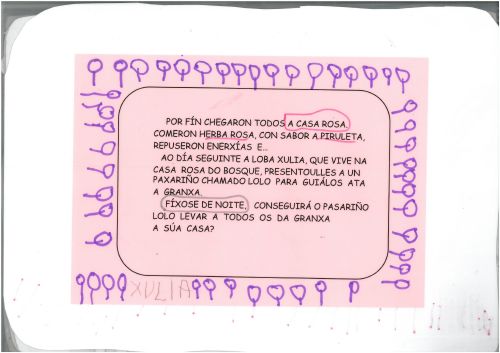 POR FÍN CHEGARON TODOS A CASA ROSA.
COMERON HERBA ROSA, CON SABOR A PIRULETA,
REPUSERON ENERXÍAS E...
AO DÍA SEGUINTE A LOBA XULIA, QUE VIVE NA
CASA ROSA DO BOSQUE, PRESENTOULLES A UN
PAXARIÑO CHAMADO LOLO PARA GUIÁLOS ATA
A GRANXA.
FÍXOSE DE NOITE, CONSEGUIRÁ O PASARIÑO
LOLO LEVAR A TODOS OS DA GRANXA
A SÚA CASA?
XULIA